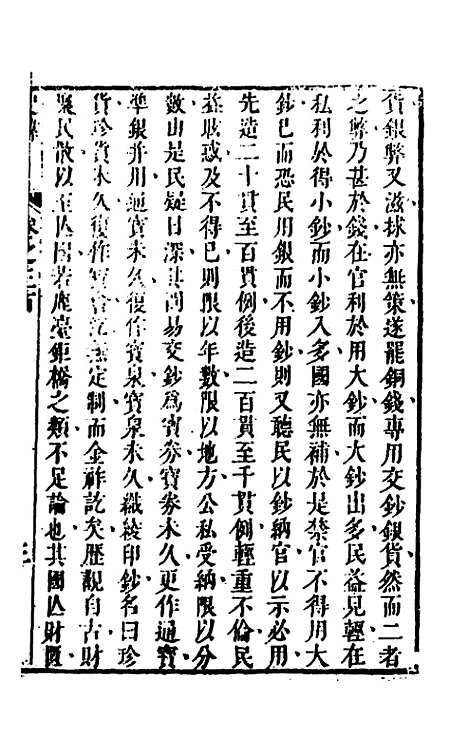 貨銀弊又滋捄亦無策遂罷銅錢專用交鈔銀貨然而二者
之弊乃甚於錢在官利於用大鈔而大鈔出多民益見輕在
私利於得小鈔而小鈔入多國亦無補於是禁官不得用大
鈔已而恐民用銀而不用鈔則又聽民以鈔納官以示必用
先造二十貫至百貫例後造二百貫至千貫例輕重不倫民
益眩惑及不得已則限以年數限以地方公私受納限以分
數由是民疑日深其間易交鈔爲寶券寶券未久更作通寶
凖銀并用通寶未久復作寶泉寶泉未久織綾印鈔名曰珍
貨珍貨未久復作寶會訖無定制而金祚訖矣歷觀自古財
聚民散以至亾國若鹿臺鉅橋之類不足論也其國亾財匱